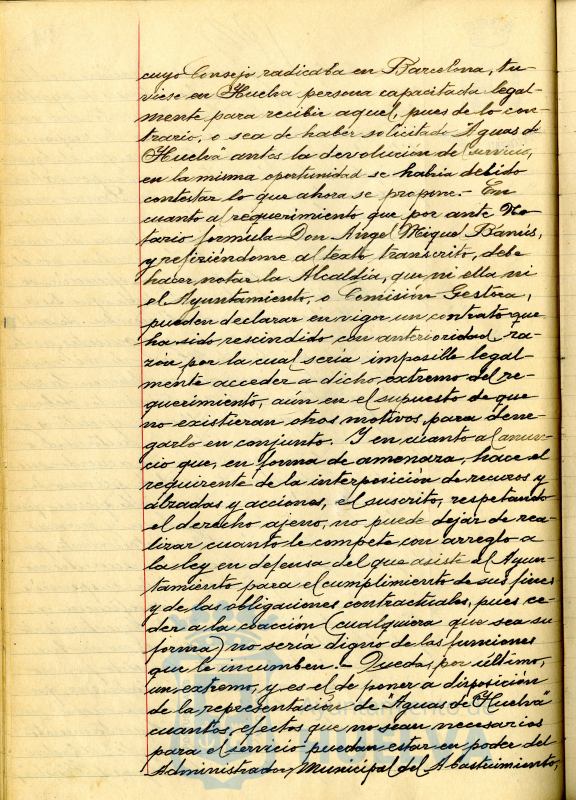 cuyo Consejo radicaba en Barcelona, tu-
viese en Huelva persona capacitada legal-
mente para recibir aquel, pues de lo con-
trario, o sea de haber solicitado "Aguas de
Huelva" antes la devolución del servicio,
en la misma oportunidad se habria debido
contestar lo que ahora se propone.- En
cuanto al requerimiento que por ante No-
tario formula Don Angel Miqué Banús,
y refiriéndome al texto transcrito, debe
hacer notar la Alcaldía, que ni ella ni
el Ayuntamiento, o Comisión Gestora,
pueden declarar en vigor un contrato que
ha sido rescindido con anterioridad, ra-
zón por la cual seria imposible legal-
mente acceder a dicho extremo del re-
querimiento, aún en el supuesto de que
no existieran otros motivos para dene-
garlo en conjunto. Y en cuanto al anun-
cio que, en forma de amenaza, hace el
requirente de la interposición de recursos y
alzadas y acciones, el suscrito, respetando
el derecho ajeno, no puede dejar de rea-
lizar cuanto le compete con arreglo a
la ley en defensa del que asiste el Ayun-
tamiento para el cumplimiento de sus fines
y de las obligaciones contractuales, pues ce-
der a la coacción (cualquiera que sea su
forma) no sería digno de las funciones
que le incumben.- Queda, por último,
un extremo, y es el de poner a disposición
de la representación de "Aguas de Huelva"
cuantos efectos que no sean necesarios
para el servicio puedan estar en poder del
Administrador Municipal del Abastecimiento,
HUELVA